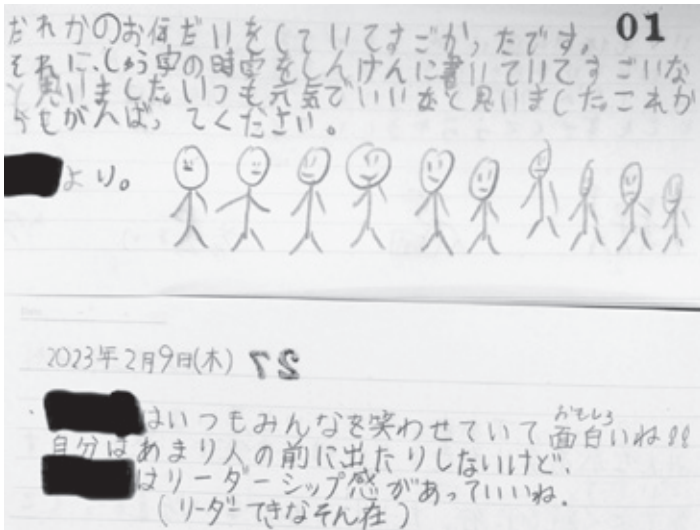 01
だれかのお伝だいをしていてすごかったです。
それに、しゅう字の時字をしんけんに書いていてすごいな
と思いました。いつも元気でいいなと思いました。これか
らもがんばってください。
より。
2023年2月9日(木) 27
はいつもみんなを笑わせていて面白いね!!
おもしろ
自分はあまり人の前に出たりしないけど、
はリーダーシップ感があっていいね。
(リーダーてきなそん在)